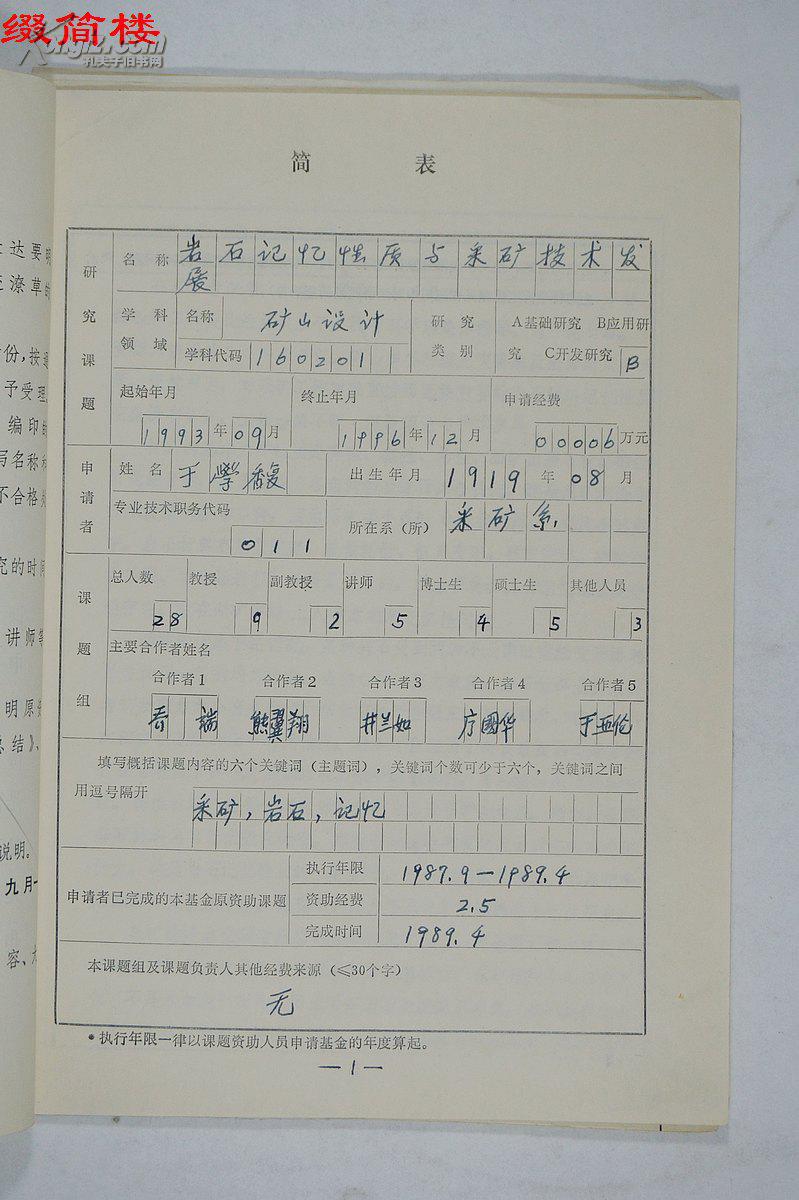 缀简楼
Kongfz.com
孔夫子旧书网
简 表
研究课题
名 称 岩石记忆性质与采矿技术发
展
学 科 领 域
名称 矿山设计
学科代码 160201
研 究 类 别
A基础研究 B应用研
究 C开发研究 B
起始年月 终止年月 申请经费
1993年09月 1996年12月 00006万元
申请者
姓 名 于学馥 出生年月 1919年08月
专业技术职务代码 011
所在系（所） 采矿系
课题组
总人数 教授 副教授 讲师 博士生 硕士生 其他人员
28 9 2 5 4 5 3
主要合作者姓名
合作者1 合作者2 合作者3 合作者4 合作者5
乔瑞 熊翼翔 井兰如 方国华 于亚伦
填写概括课题内容的六个关键词（主题词），关键词个数可少于六个，关键词之间
用逗号隔开
采矿，岩石，记忆
申请者已完成的本基金原资助课题
执行年限 1987.9—1989.4
资助经费 2.5
完成时间 1989.4
本课题组及课题负责人其他经费来源（≤30个字）
无
*执行年限一律以课题资助人员申请基金的年度算起。
—1—
达要明
潦草的
份，按
予受理
编印的
写名称和
不合格
究的时间
讲师等
明原
总结》、
说明。
九月
容、